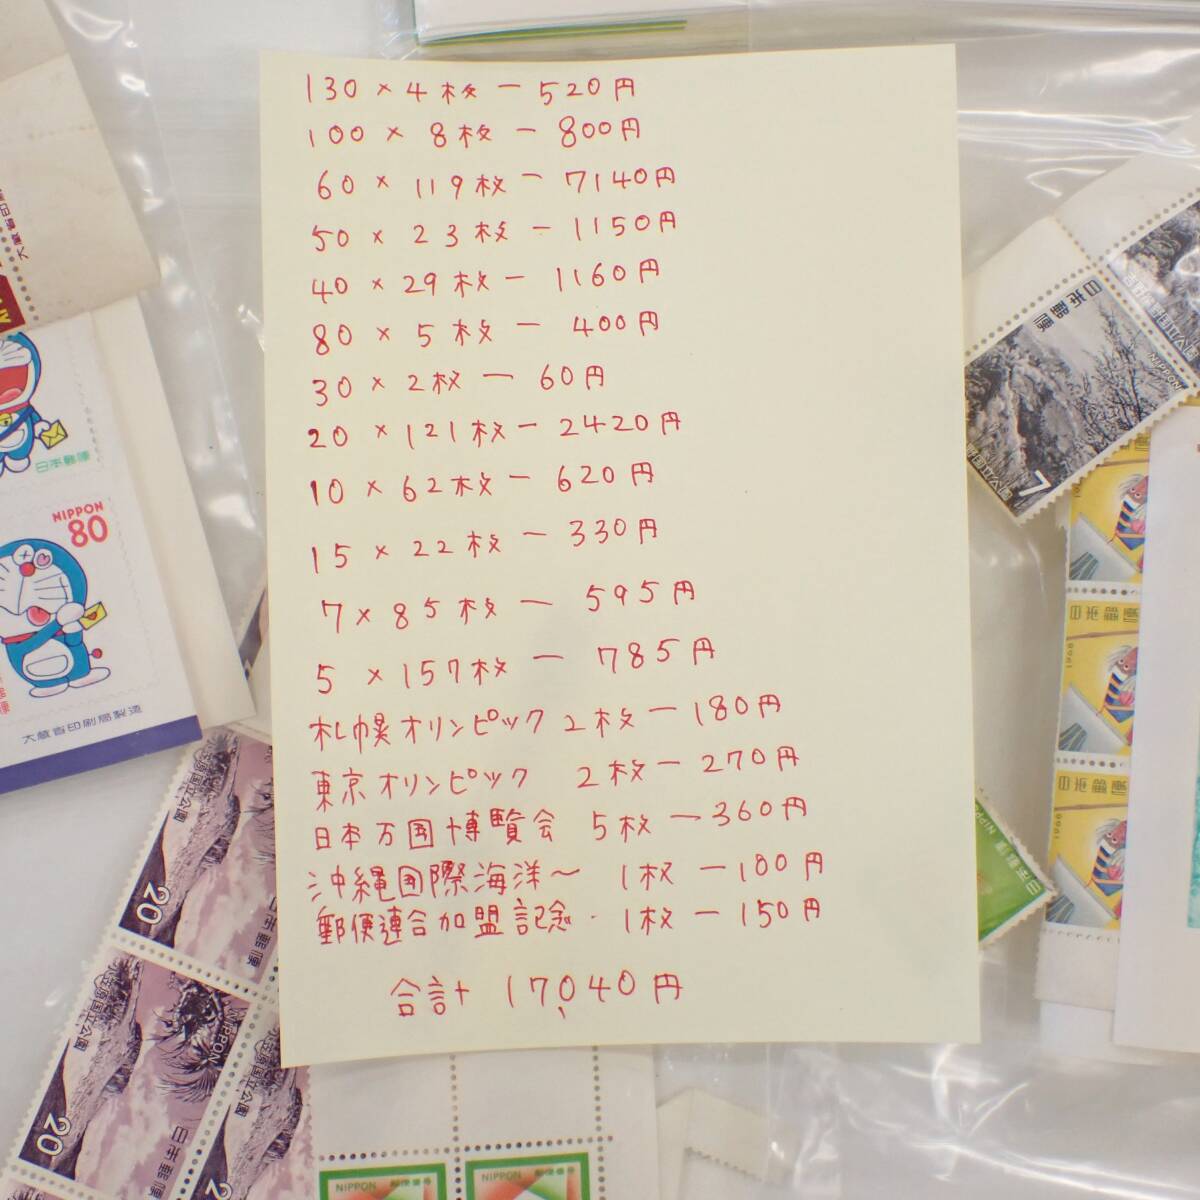 130 × 4枚 ー 520円
100 × 8枚 ー 800円
60 × 119枚 ー 7140円
50 × 23枚 ー 1150円
40 × 29枚 ー 1160円
80 × 5枚 ー 400円
30 × 2枚 ー 60円
20 × 121枚 ー 2420円
10 × 62枚 ー 620円
15 × 22枚 ー 330円
7 × 85枚 ー 595円
5 × 157枚 ー 785円
札幌オリンピック 2枚 ー 180円
東京オリンピック 2枚 ー 270円
日本万国博覧会 5枚 ー 360円
沖縄国際海洋〜 1枚 ー 100円
郵便連合加盟記念・1枚 ー 150円
合計 17,040円
日本郵便
NIPPON
80
大蔵省印刷局製造
日本郵便
NIPPON
7
国立公園
日本郵便
1966
日本郵便
1966
NIPPON
日本郵便
20
日本郵便
国立公園
20
日本郵便
NIPPON
国立公園
NIPPON
日本郵便
NIPPON
大蔵省印